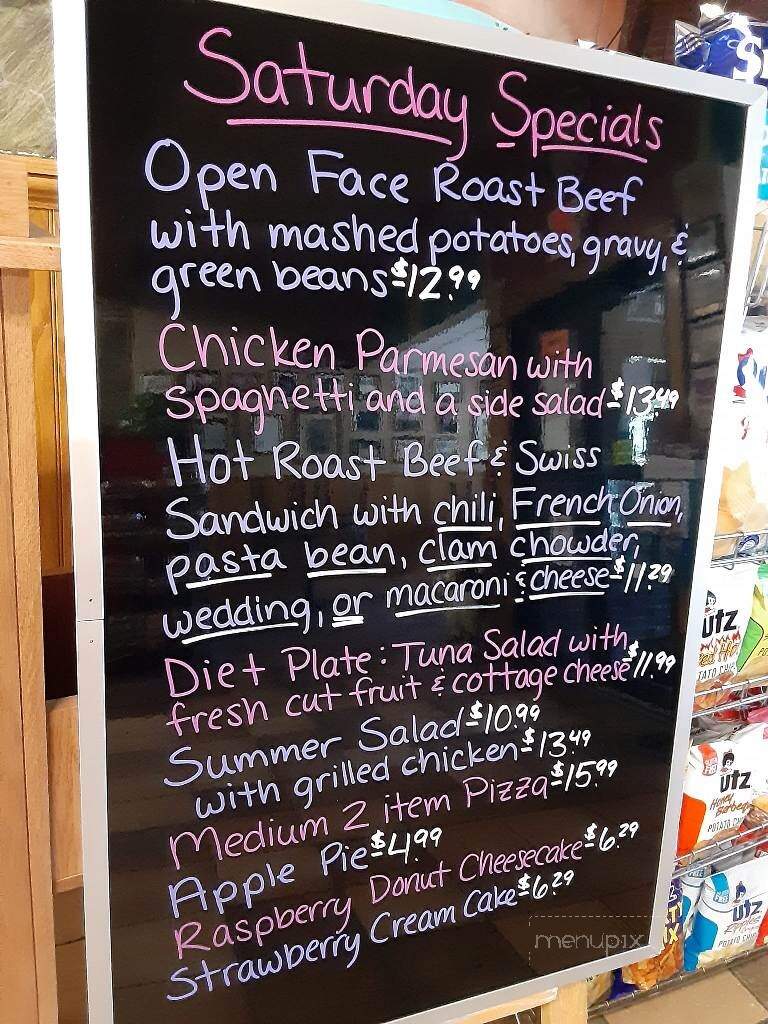 Saturday Specials
Open Face Roast Beef
with mashed potatoes, gravy, &
green beans-$12.99
Chicken Parmesan with
spaghetti and a side salad-$13.49
Hot Roast Beef & Swiss
Sandwich with chili, French Onion,
pasta bean, clam chowder,
wedding, or macaroni & cheese-$11.29
Diet Plate: Tuna Salad with
fresh cut fruit & cottage cheese-$11.99
Summer Salad-$10.99
with grilled chicken-$13.49
Medium 2 item Pizza-$15.99
Apple Pie-$4.99
Raspberry Donut Cheesecake-$6.29
Strawberry Cream Cake-$6.29
menupix
utz
utz
Honey
Barbeque
POTATO
utz
POTATO CHIPS